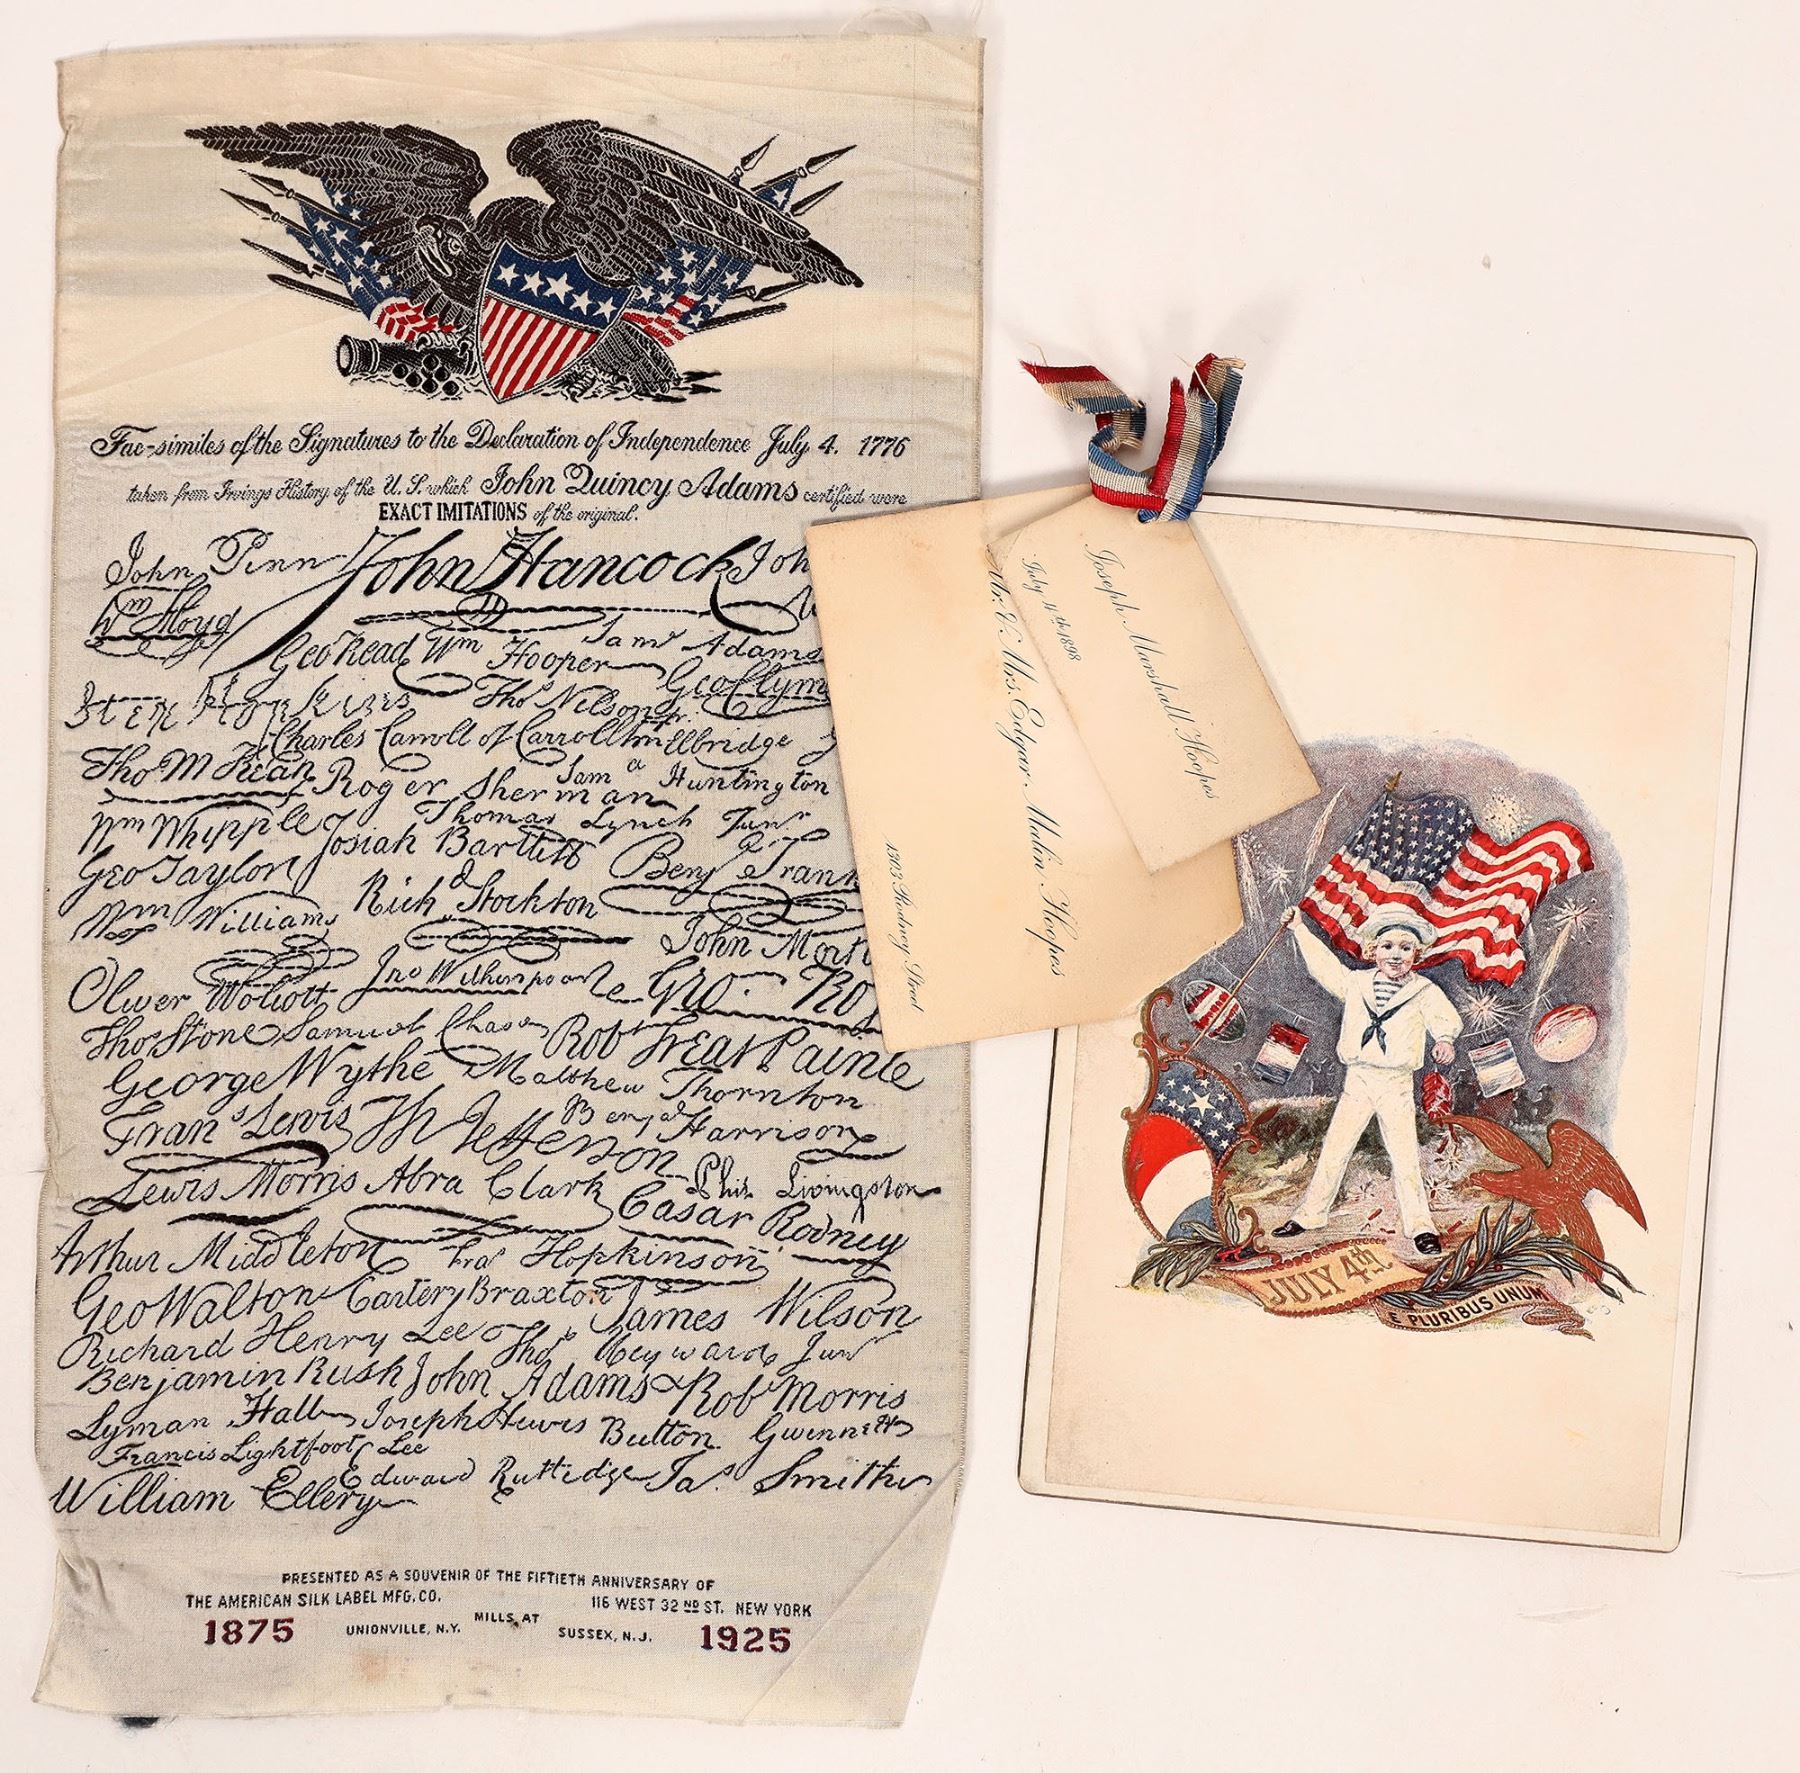 Fac-similes of the Signatures to the Declaration of Independence July 4. 1776
taken from Irvings History of the U.S. which John Quincy Adams certified were
EXACT IMITATIONS of the original.
John Penn John Hancock Joh
Wm Floyd
Geo Read Wm Hooper Saml Adams
Step Hopkins Thos Nelson jr. Geo Clym
Charles Carroll of Carrollton Elbridge G
Tho M Kean Roger Sherman Sam Huntington
Wm Whipple Thomas Lynch Junr
Josiah Bartlett
Geo Taylon Benj Frank
Wm Williams Richd Stockton
John Mort
Oliver Wolcott Jno Witherspoon Geo. Ro
Thos Stone Samuel Chase Robt Treat Paine
George Wythe Matthew Thornton
Frans Lewis Th Jefferson Benja Harrison
Lewis Morris Abra Clark Phil. Livingston
Casar Rodney
Arthur Middleton Fras Hopkinson
Geo Walton Carter Braxton James Wilson
Richard Henry Lee Thos Heyward Junr
Benjamin Rush John Adams Robt Morris
Lyman Hall Joseph Hewes Button Gwinnett
Francis Lightfoot Lee
William Ellery Edward Rutledge Jas. Smith
PRESENTED AS A SOUVENIR OF THE FIFTIETH ANNIVERSARY OF
THE AMERICAN SILK LABEL MFG. CO. 116 WEST 32 ND ST. NEW YORK
1875 UNIONVILLE, N.Y. MILLS, AT SUSSEX, N.J. 1925
Joseph Marshall Hoopes
July 4th 1898
Mr. & Mrs. Edgar Malin Hoopes
1303 Rodney Street
JULY 4th
E PLURIBUS UNUM